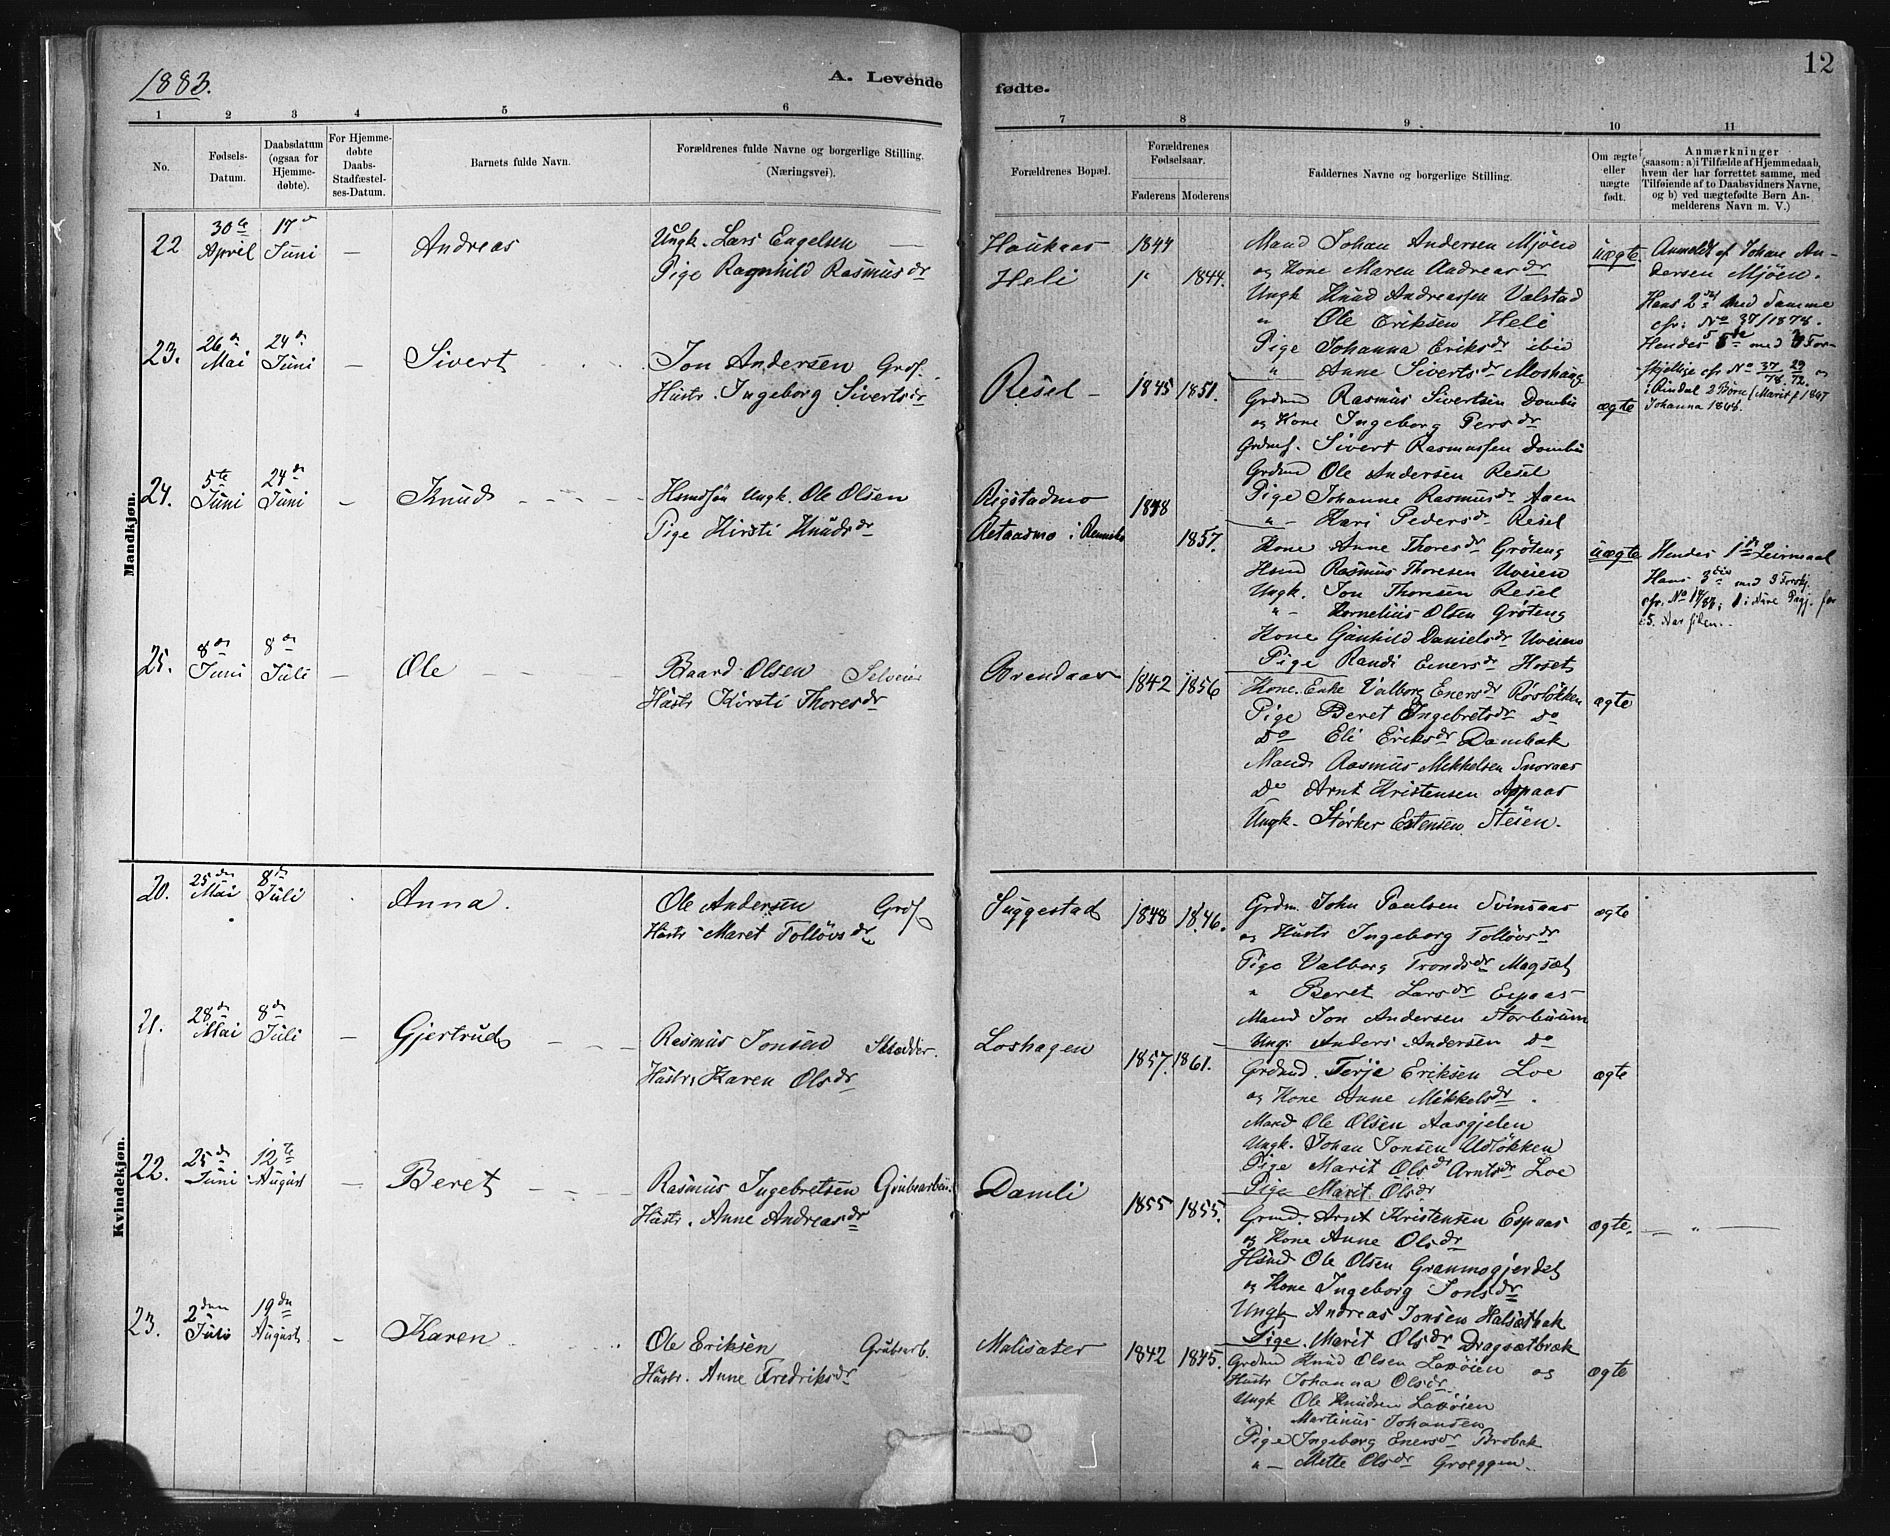 1883.
A. Levende
fødte.
12
1
2
3
4
5
6
7
8
9
10
11
No.
Fødsels-Datum.
Daabsdatum (ogsaa for Hjemme-døbte).
For Hjemme-døbte Daabs-Stadfæstel-ses-Datum.
Barnets fulde Navn.
Forældrenes fulde Navne og borgerlige Stilling. (Næringsvei).
Forældrenes Bopæl.
Forældrenes Fødselsaar.
Faderens
Moderens
Faddernes Navne og borgerlige Stilling.
Om ægte eller uægte født.
Anmærkninger
(saasom: a) i Tilfælde af Hjemmedaab,
hvem der har forrettet samme, med
Tilføiende af to Daabsvidners Navne,
og b) ved uægtefødte Børn An-
melderens Navn m. V.)
Mandkjøn.
22
30te April
17de Juni
—
Andreas
Ungk. Lars Engelsen —
Pige Ragnhild Rasmusdr
Haukaas
Heli
1844
1844.
Mand Johan Andersen Mjöen
og Kone Maren Andreasdr
Ungk Knud Andreassen Valstad
" Ole Eriksen Heli
Pige Johanna Eriksdr ibid
" Anne Sivertsdr Moshaug
uægte
Anmeldt af Johan An-
dersen Mjöen.
Hans 2det med Samme
cfr: No 37/1878.
Hendes 5te med 3 For-
skjellige cfr No 37/78. 29/72. og
i Rindal 2 Børn (Marit f 1867
Johanna 1868.
23.
26de Mai
24de Juni
—
Sivert
Jon Andersen Grdf.
Hustr. Ingeborg Sivertsdr
Resel —
1845
1851.
Grdmd Rasmus Sivertsen Dombu
og Kone Ingeborg Persdr
Grdmf. Sivert Rasmussen Dombu
Grdmd Ole Andersen Resel
Pige Johanne Rasmusdr Aaen
" Kari Pedersdr Resel
ægte
24.
5te Juni
24de Juni
—
Knud
Hsmdsön Ungk. Ole Olsen
Pige Kirsti Knudsdr
Rigstadmo
Retaadmo i Rennebo
1848
1857.
Kone Anne Thoresdr Gröteng
Hsmd Rasmus Thoresen Uveien
Ungk. Jon Thoresen Resel
" Kornelius Olsen Gröteng
Kone Gunhild Danielsdr Uveien
Pige Randi Enersdr Hoset
uægte
Hendes 1ste Leiermaal
Hans 3die med 3 Forskj.
25.
8de Juni
8de Juli
—
Ole
Baard Olsen Selveier
Hustr Kirsti Thoresdr
Brendaas
1842
1856
Kone. Enke Valborg Enersdr Rösløkken
Pige Beret Ingebretsdr Do
Do Eli Eriksdr Dambak
Mand Rasmus Mikkelsen Snoraas
Do Arnt Kristensen Aspaas
Ungk. Størker Estensen Steien.
ægte
Kvindekjøn.
20.
25de Mai
8de Juli
Anna.
Ole Andersen Grdf
Hustr Maret Tolløvsdr
Suggestad
1848
1846.
Grdm. John Paulsen Svinsaas
og Hustr Ingeborg Tolløvsdr
Pige Valborg Trondsdr Magsæt
" Beret Larsdr Espaas
Mand Jon Andersen Storbuum
Ungk Anders Andersen Do
ægte
21.
28de Mai
8de Juli
—
Gjertrud
Rasmus Jonsen Skrædder.
Hustr. Karen Olsdr
Loshagen
1857.
1861.
Grdmd. Terje Eriksen Loe
og Kone Anne Mikkelsdr.
Mand Ole Olsen Aasgjelen
Ungk. Johan Jonsen Udløkken
Pige Marit Olsdr Arntsdr Loe
Pige Marit Olsdr
ægte
22.
25de Juni
12te August
—
Beret
Rasmus Ingebretsen Grubearbei.
Hustr. Anne Andreasdr
Damli
1855
1855.
Grmd. Arnt Kristensen Espaas
og Kone Anne Olsdr
Hsmd Ole Olsen Granmogjerdet
og Kone Ingeborg Jonsdr
Ungk Andreas Jonsen Halsetbak
Pige. Marit Olsdr Dragsætbræk
ægte.
23.
2den Juli
19de August.
—
Karen
Ole Eriksen Grubearb.
Hustr. Anne Fredriksdr
Malisæter
1842
1845.
Grdmd Knud Olsen Laxöien og
Hustr Johanna Olsdr
Ungk Ole Knudsen Laxöien
" Martinus Johansen
Pige Ingeborg Enersdr Brobak
" Mette Olsdr Groeggen.
ægte